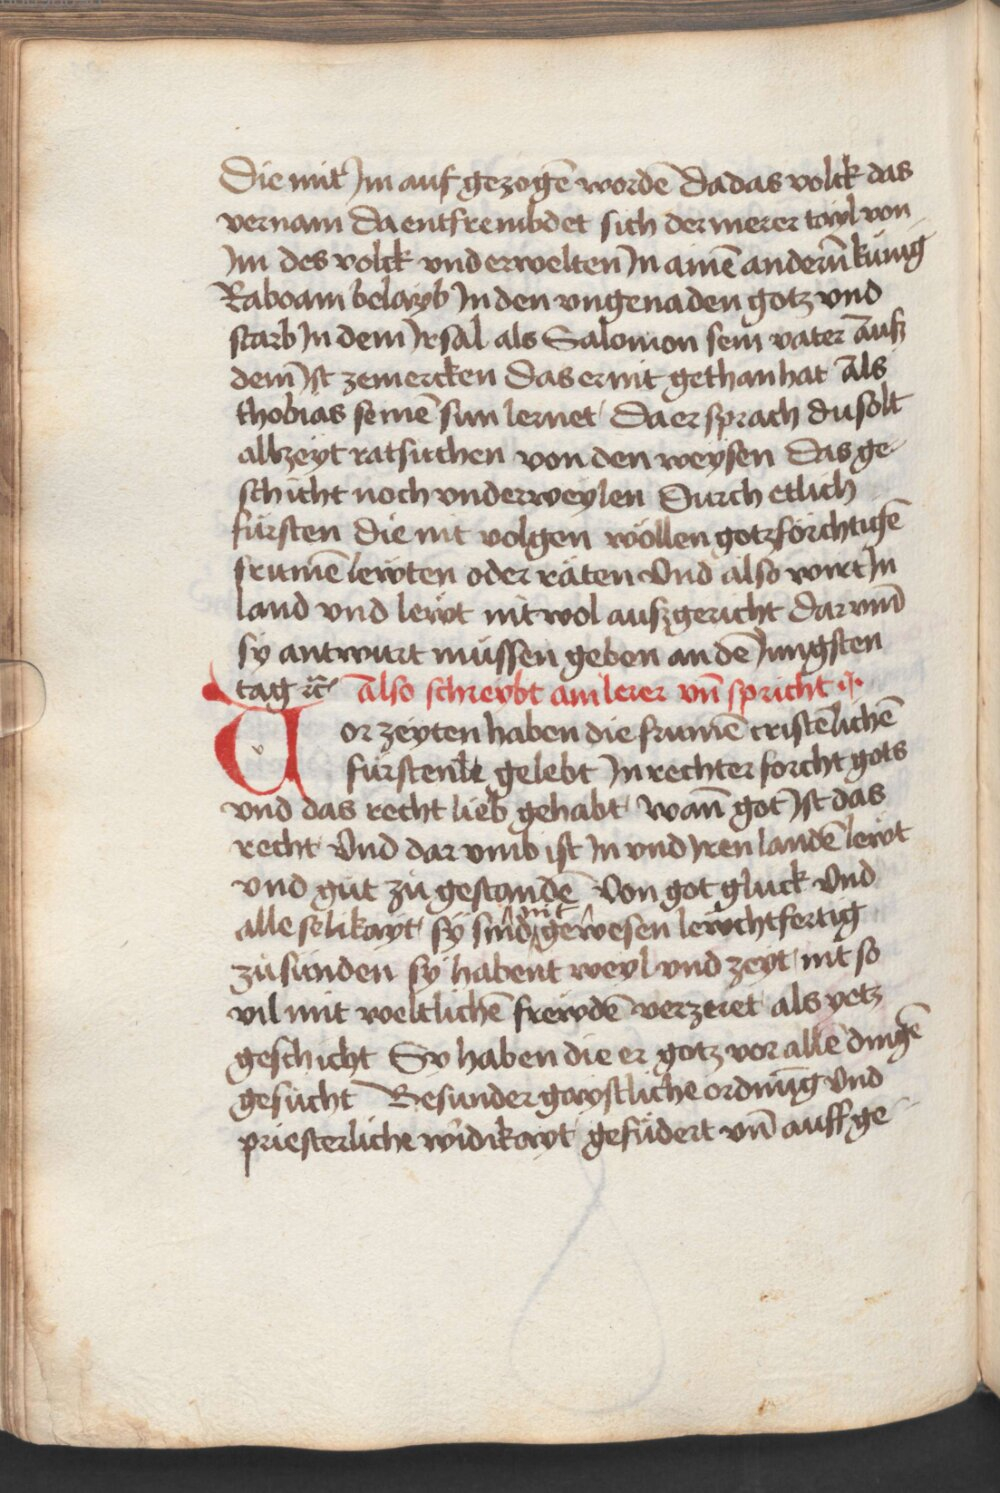 Die mit Jm auf gezogē wordē Da das volck das
vernam Da entfrembdet sich der merer tayl von
Jm des volck vnd erwelten Jn ainē anderñ künig
Raboam belayb Jn den vngenaden gotz vnd
starb Jn dem Jrsal als Salomon sein vater Auß
dem Jst zemercken Das er nit gethan hat Als
thobias seinē sun lernet Da er sprach du solt
allzeyt rat suchen von den weysen Das ge-
schicht noch vnderweylen Durch etlich
fürsten die nit volgen wöllen gotzförchtigē
frumē lewten oder räten Vnd also wirt Jn
land vnd lewt nit wol außgericht Dar vm̄
sy antwurt müssen geben an dē Jungsten
tag rc̄ Also schreybt ain lerer vn̄ spricht
Vor zeyten haben die frumē cristēlichē
fürsten gelebt Jn rechter forcht gots
vnd das recht lieb gehabt Wañ got Jst das
recht Vnd dar vmb ist Jn vnd Jren landē lewt
vnd gůt zů gestandē Von got gluck Vnd
alle selikayt sy sind nit gewesen lewchtfertig
zů sünden sy habent weyl vnd zeyt nit so
vil mit weltlichē frewdē verzeret als yetz
geschicht Sy haben die er gotz vor allē dingē
gesucht Besunder gaystliche ordnūg Vnd
priesterliche wirdikayt gefüdert vn̄ auff ge-